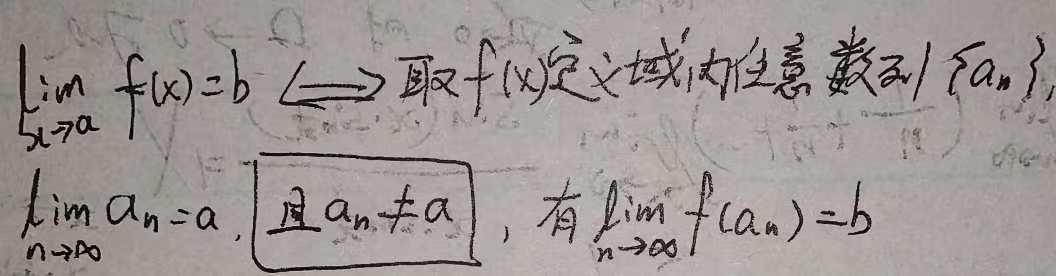 lim x→a f(x)=b ⟺ 取f(x)定义域内任意数列{aₙ},
lim n→∞ aₙ=a, 且aₙ≠a, 有 lim n→∞ f(aₙ)=b